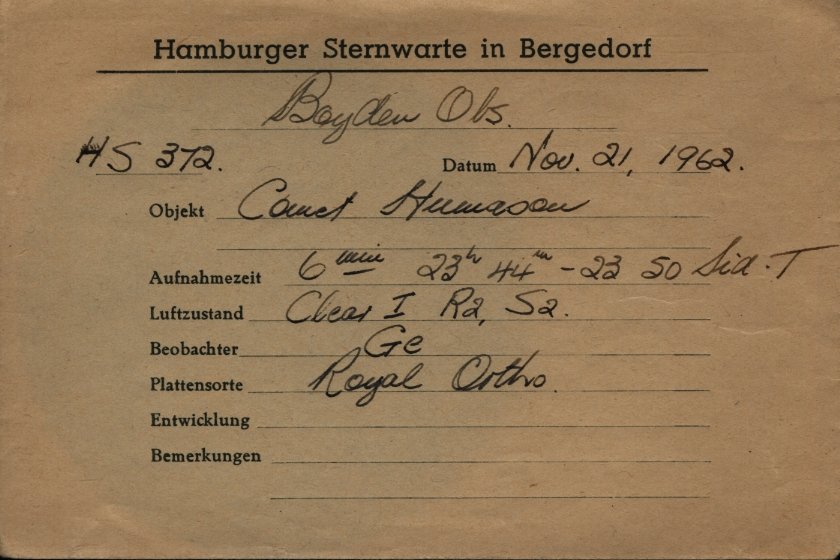 Hamburger Sternwarte in Bergedorf
Boyden Obs.
HS 372. Datum Nov. 21, 1962.
Objekt Comet Humason
Aufnahmezeit 6 min 23h 44m - 23 50 Sid. T
Luftzustand Clear I R2, S2.
Beobachter Ge
Plattensorte Royal Ortho.
Entwicklung
Bemerkungen